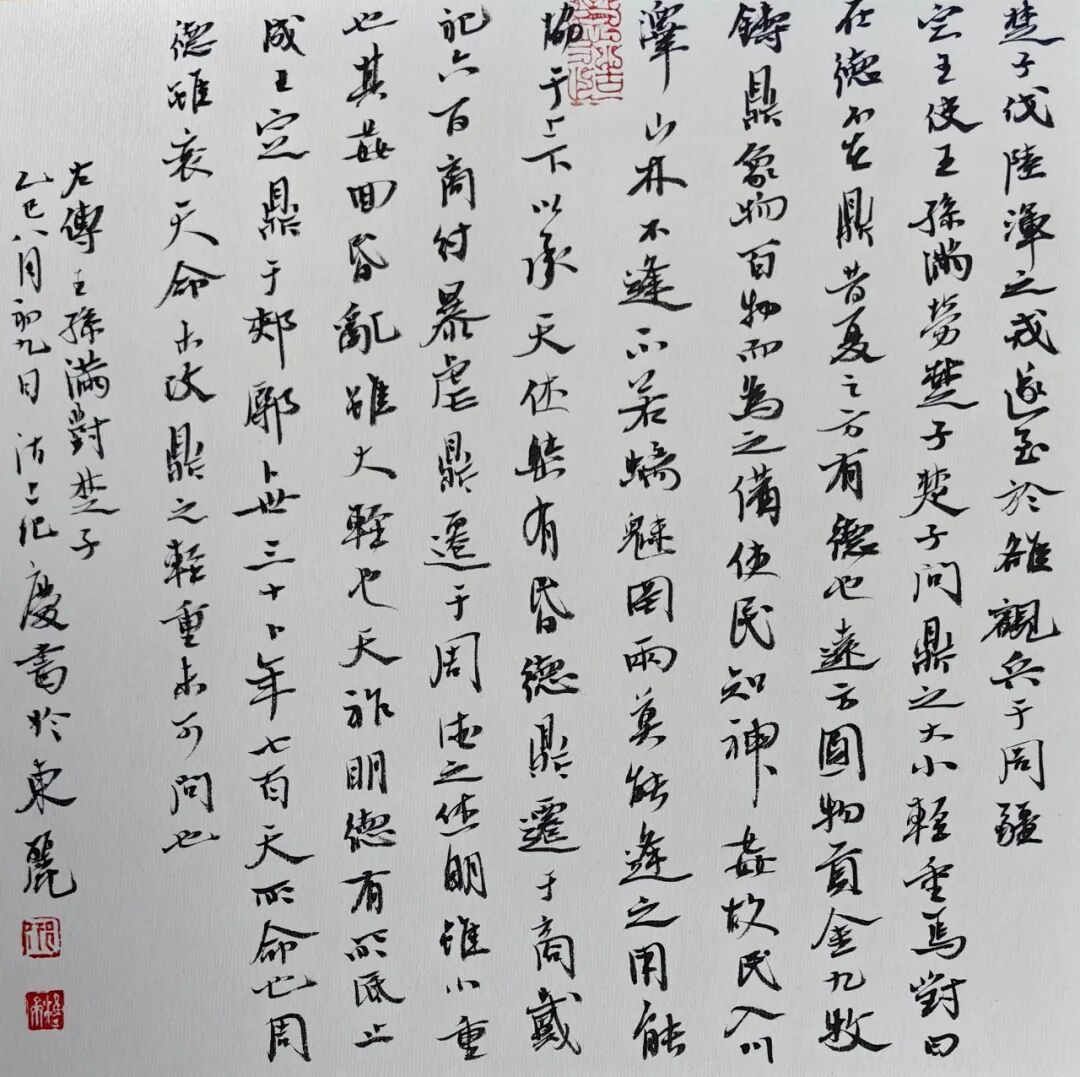 楚子伐陸渾之戎遂至於雒觀兵于周疆
定王使王孫滿勞楚子楚子問鼎之大小輕重焉對曰
在德不在鼎昔夏之方有德也遠方圖物貢金九牧
鑄鼎象物百物而為之備使民知神姦故民入川
澤山林不逢不若螭魅罔兩莫能逢之用能
協于上下以承天休桀有昏德鼎遷于商載
祀六百商紂暴虐鼎遷于周德之休明雖小重
也其姦回昏亂雖大輕也天祚明德有所底止
成王定鼎于郟鄏卜世三十卜年七百天所命也周
德雖衰天命未改鼎之輕重未可問也
左傳王孫滿對楚子
乙巳八月初九日沽上紀慶書於東麗